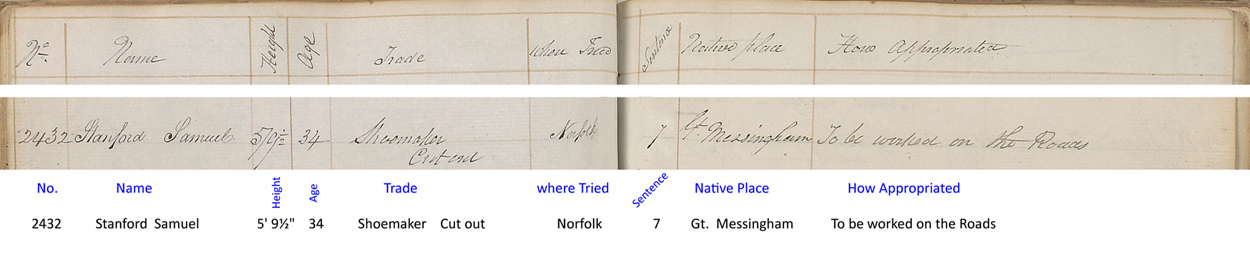 No. Name Height Age Trade where Tried Sentence Native place How Appropriated
2432 Stanford Samuel 5/9½ 34 Shoemaker Norfolk 7 Gt. Messingham To be worked on the Roads
Cut out
No. Name Height Age Trade where Tried Sentence Native Place How Appropriated
2432 Stanford Samuel 5' 9½" 34 Shoemaker Cut out Norfolk 7 Gt. Messingham To be worked on the Roads